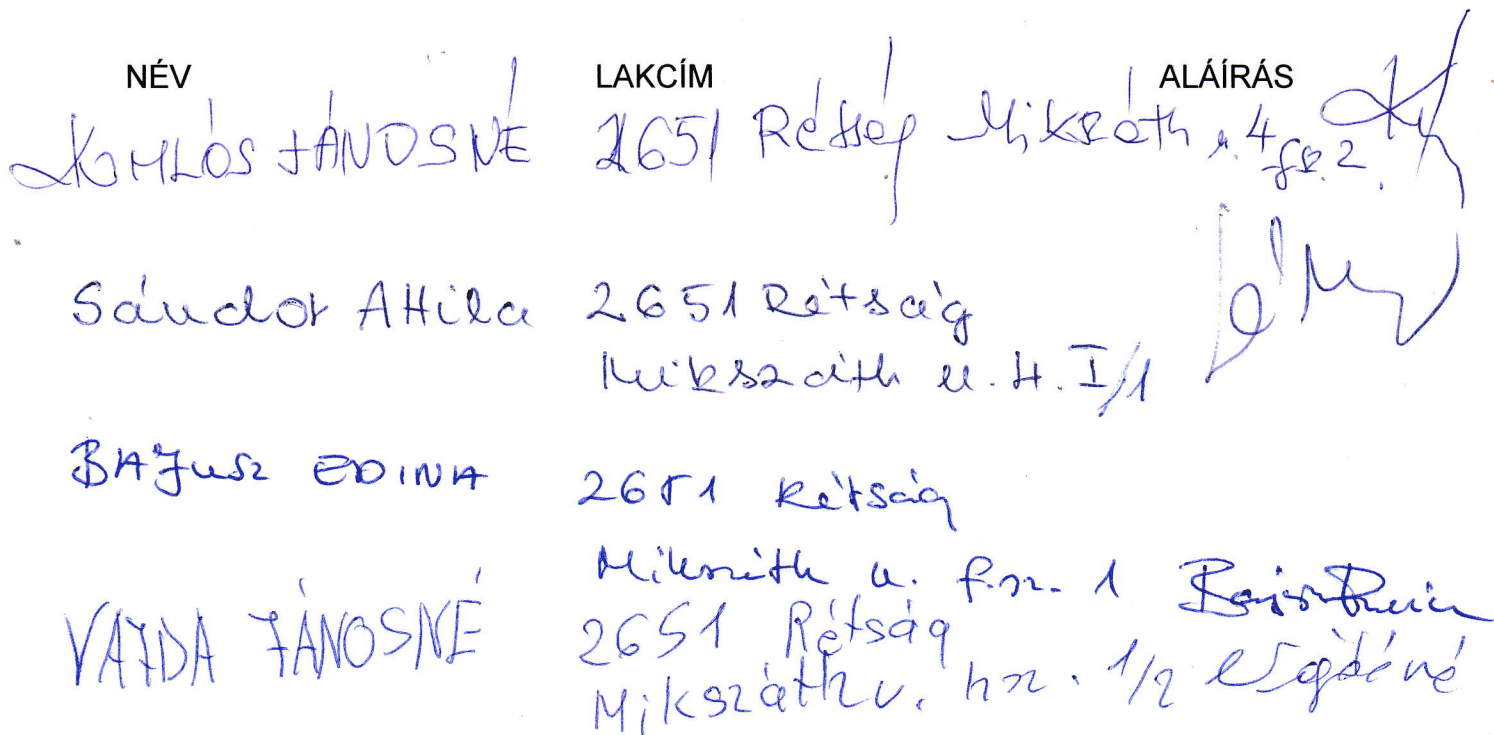 NÉV LAKCÍM ALÁÍRÁS
KOMLÓS JÁNOSNÉ 2651 Rétság Mikszáth u. 4 fsz. 2.
Sándor Attila 2651 Rétság
Mikszáth u. 4. I/1
BAJUSZ EDINA 2651 Rétság
Mikszáth u. f.sz. 1
VAJDA JÁNOSNÉ 2651 Rétság
Mikszáth u. 1/2 Vajdáné